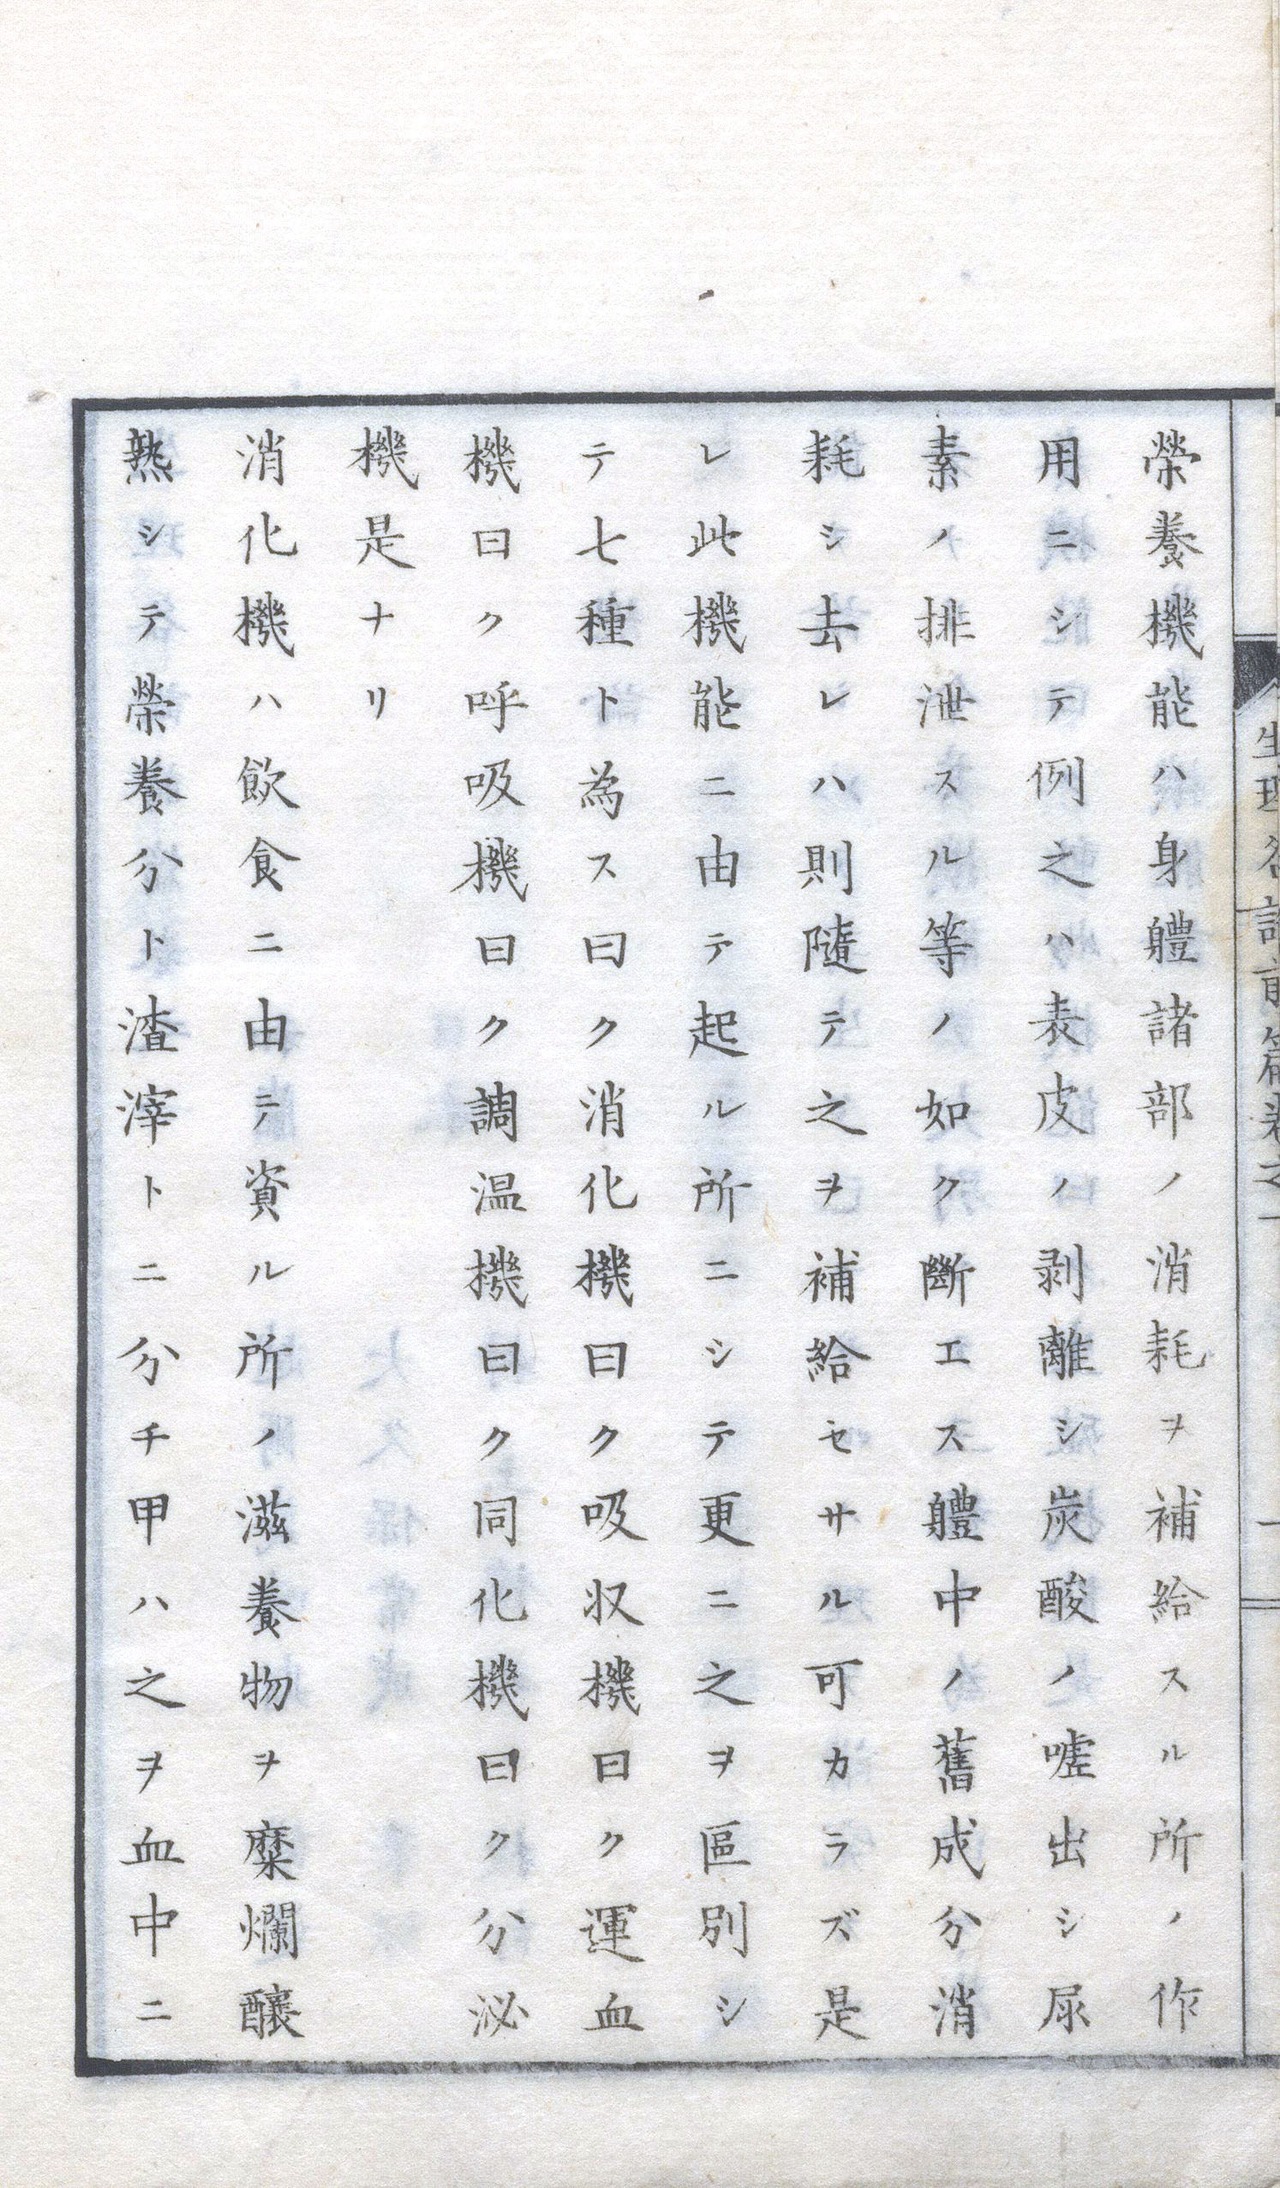 榮養機能ハ身軆諸部ノ消耗ヲ補給スル所ノ作
用ニシテ例之ハ表皮ノ剥離シ炭酸ノ噓出シ尿
素ノ排泄スル等ノ如ク斷エス軆中ノ舊成分消
耗シ去レハ則隨テ之ヲ補給セサル可カラズ是
レ此機能ニ由テ起ル所ニシテ更ニ之ヲ區別シ
テ七種ト為ス曰ク消化機曰ク吸収機曰ク運血
機曰ク呼吸機曰ク調温機曰ク同化機曰ク分泌
機是ナリ
消化機ハ飲食ニ由テ資ル所ノ滋養物ヲ糜爛釀
熟シテ榮養分ト渣滓トニ分チ甲ハ之ヲ血中ニ
生理